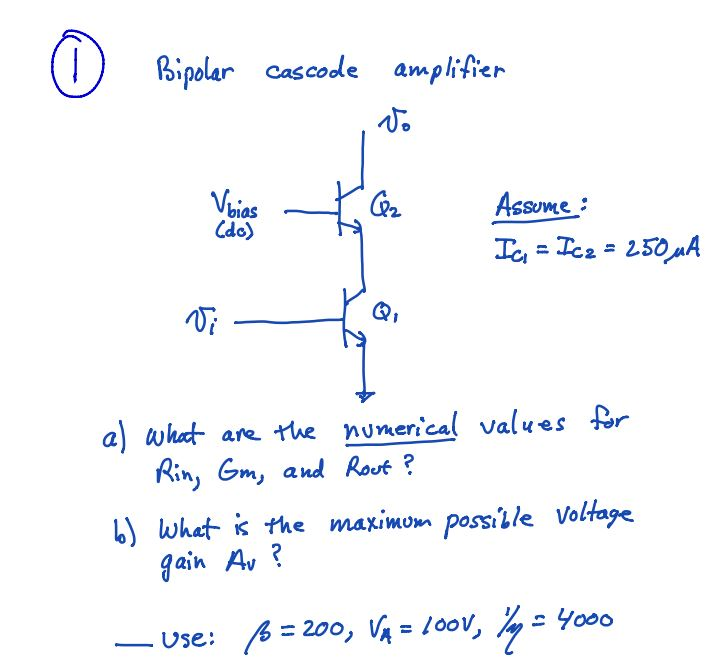 1 Bipolar cascode amplifier
Vo
Vbias
(dc)
Q2
Assume:
IC1 = IC2 = 250 μA
Vi
Q1
a) What are the numerical values for
Rin, Gm, and Rout?
b) What is the maximum possible voltage
gain Av?
— Use: β = 200, VA = 100V, 1/η = 4000